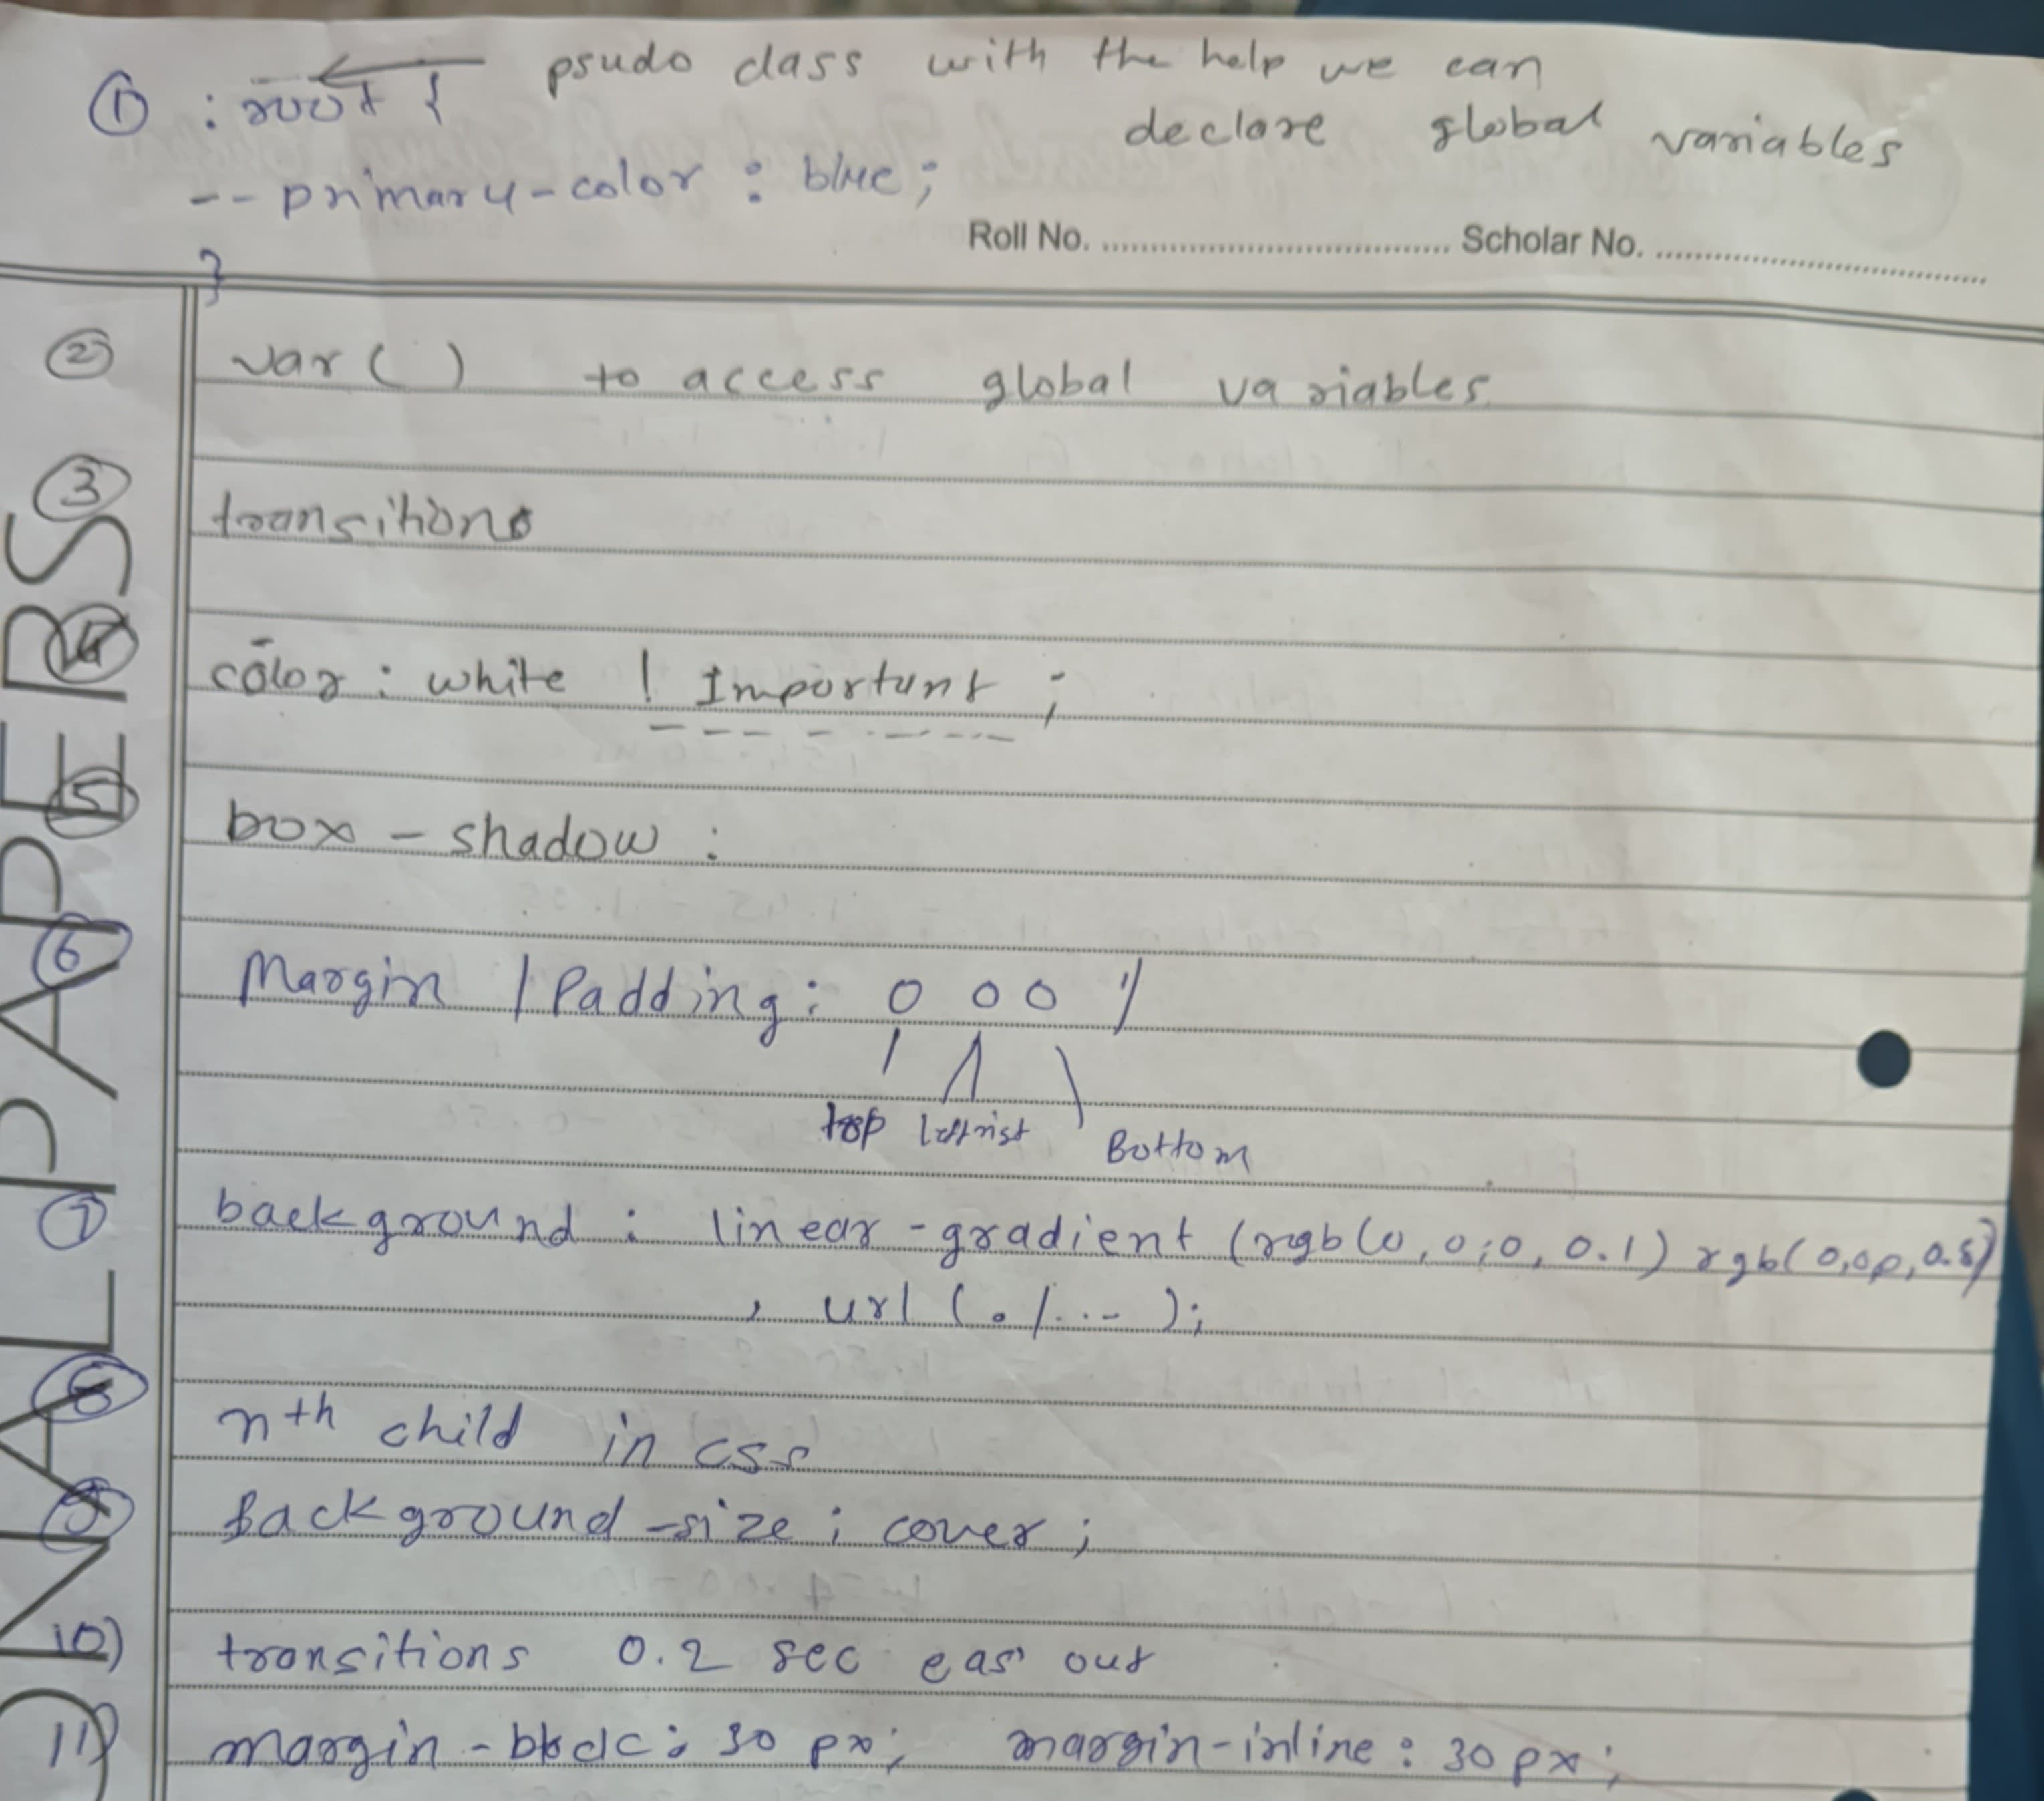 ① :root { psudo class with the help we can
declare global variables
--primary-color : blue;
Roll No. .................................. Scholar No. ..................................
}
② var ( ) to access global variables
③ transitions
④ color : white ! Important ;
⑤ box - shadow :
⑥ Margin / Padding : 0 0 0
top Bottom
⑦ background : linear - gradient (rgb(0, 0, 0, 0.1) rgb(0,0,0, 0.5)
, url ( . / ... );
⑧ nth child in css
⑨ Background - size : cover ;
10) transitions 0.2 sec out
11) margin - : 30 px ; margin-inline : 30 px ;
ONAL PAPERS